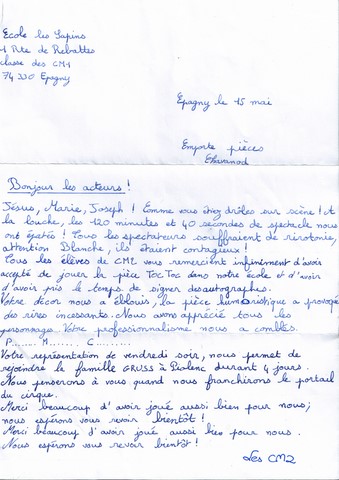 Ecole les Sapins
1 Rte de Rebattes
classe des CM1
74 330 Epagny
Epagny le 15 mai
Emporte pièces
Chavanod
Bonjour les acteurs!
Jésus, Marie, Joseph! Comme vous étiez drôles sur scène! A
la louche, les 120 minutes et 40 secondes de spectacle nous
ont épatés! Tous les spectateurs souffraient de ririotonie,
attention Blanche, ils étaient contagieux!
Tous les élèves de CM2 vous remercient infiniment d'avoir
accepté de jouer la pièce Toc Toc dans notre école et d'avoir
d'avoir pris le temps de signer des autographes.
Votre décor nous a éblouis, la pièce humoristique a provoqué
des rires incessants. Nous avons apprécié tous les
personnages. Votre professionnalisme nous a comblés.
P....... M....... C..........
Votre représentation de vendredi soir, nous permet de
rejoindre la famille GRUSS à Piolenc durant 4 jours.
Nous penserons à vous quand nous franchirons le portail
du cirque.
Merci beaucoup d'avoir joué aussi bien pour nous;
nous espérons vous revoir bientôt!
Merci beaucoup d'avoir joué aussi bien pour nous.
Nous espérons vous revoir bientôt!
Les CM2